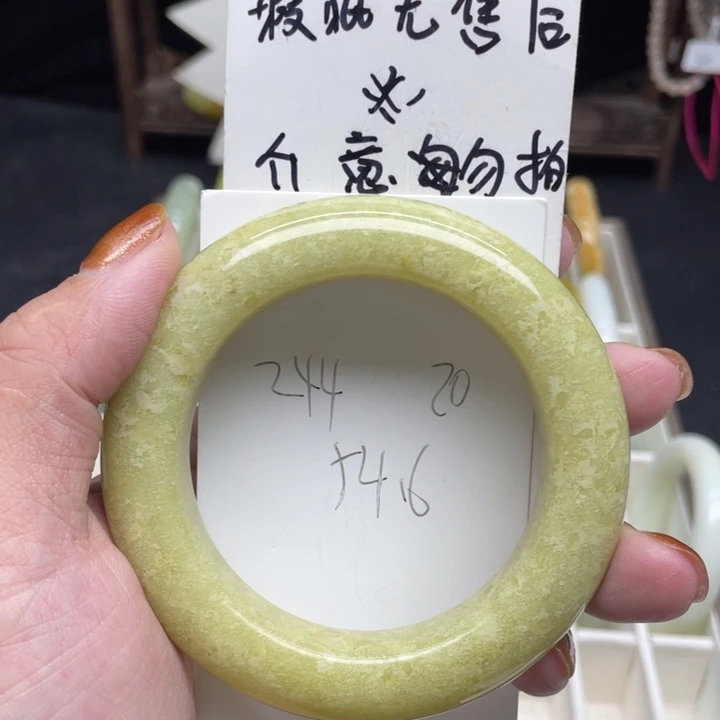 瑕疵无售后
※
介意勿拍
244 20
54.6